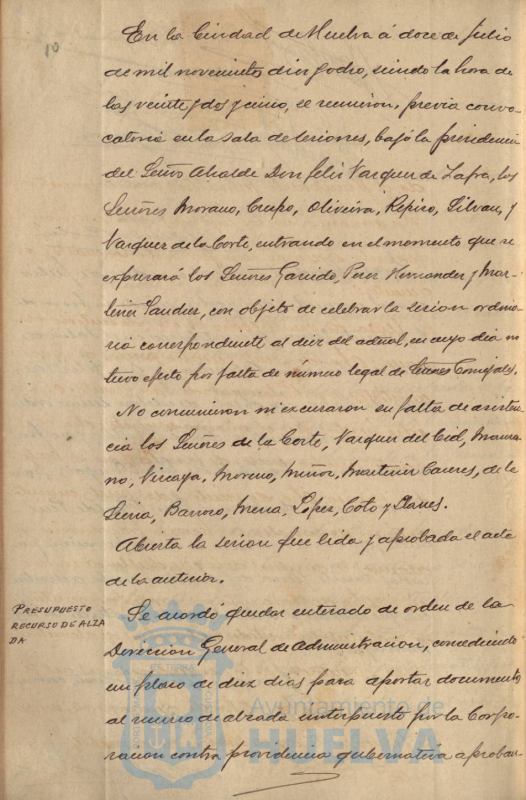 10
En la Ciudad de Huelva á doce de Julio
de mil novecientos diez y ocho, siendo la hora de
las veinte y dos y cinco, se reunieron, previa convo-
catoria en la Sala de sesiones, bajo la presidencia
del Señor Alcalde Don Felix Vazquez de Zafra, los
Señores Morano, Crespo, Oliveira, Repiso, Silvan, y
Vazquez de la Corte, entrando en el momento que se
expresará los Señores Garrido, Perez Hernandez y Mar-
tinez Sanchez, con objeto de celebrar la sesion ordina-
ria correspondiente al diez del actual, en cuyo dia no
tuvo efecto por falta de número legal de Señores Concejales.
No concurrieron ni excusaron su falta de asisten-
cia los Señores de la Corte, Vazquez del Cid,
no, Vizcaya, Moreno, Muñoz, Martinez Caceres, de la
Barroso, Mena, Lopez, Coto y Llanes.
Abierta la sesion fue lida y aprobada el acta
de la anterior.
PRESUPUESTO
RECURSO DE ALZA
DA
Se acordó quedar enterado de orden de la
Direccion General de Administracion, concediendo
un plazo de diez dias para aportar documentos
al recurso de alzada interpuesto por la Corpo-
racion contra providencia gubernativa aproban-
Ayuntamiento de
HUELVA